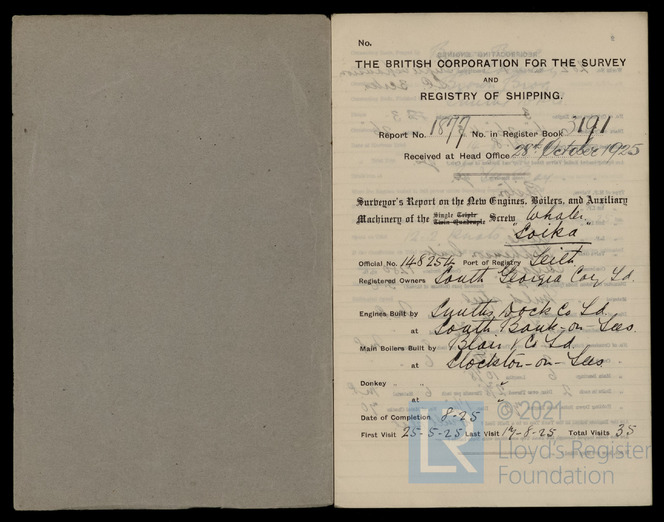 No.
THE BRITISH CORPORATION FOR THE SURVEY
AND
REGISTRY OF SHIPPING.
Report No. 1879 No. in Register Book 3191
Received at Head Office 28th October 1925
Surveyor's Report on the New Engines, Boilers, and Auxiliary
Machinery of the Single Triple Twin Quadruple Screw Whaler
"Soika"
Official No. 148254 Port of Registry Leith
Registered Owners South Georgia Coy Ld.
Engines Built by Smiths Dock Co Ld
at South Bank-on-Tees.
Main Boilers Built by Blair & Co Ld
at Stockton-on-Tees
Donkey " "
at "
Date of Completion 8-25
First Visit 25-5-25 Last Visit 17-8-25 Total Visits 35
LR
© 2021
Lloyd's Register
Foundation